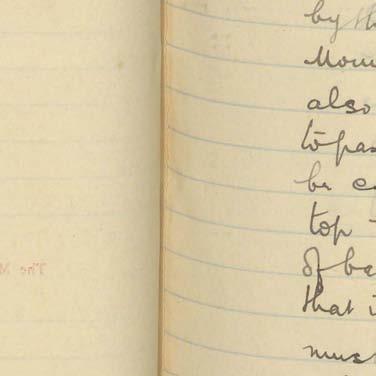 by th
Moun
also
to pas
be c
top
of ba
that i
muc